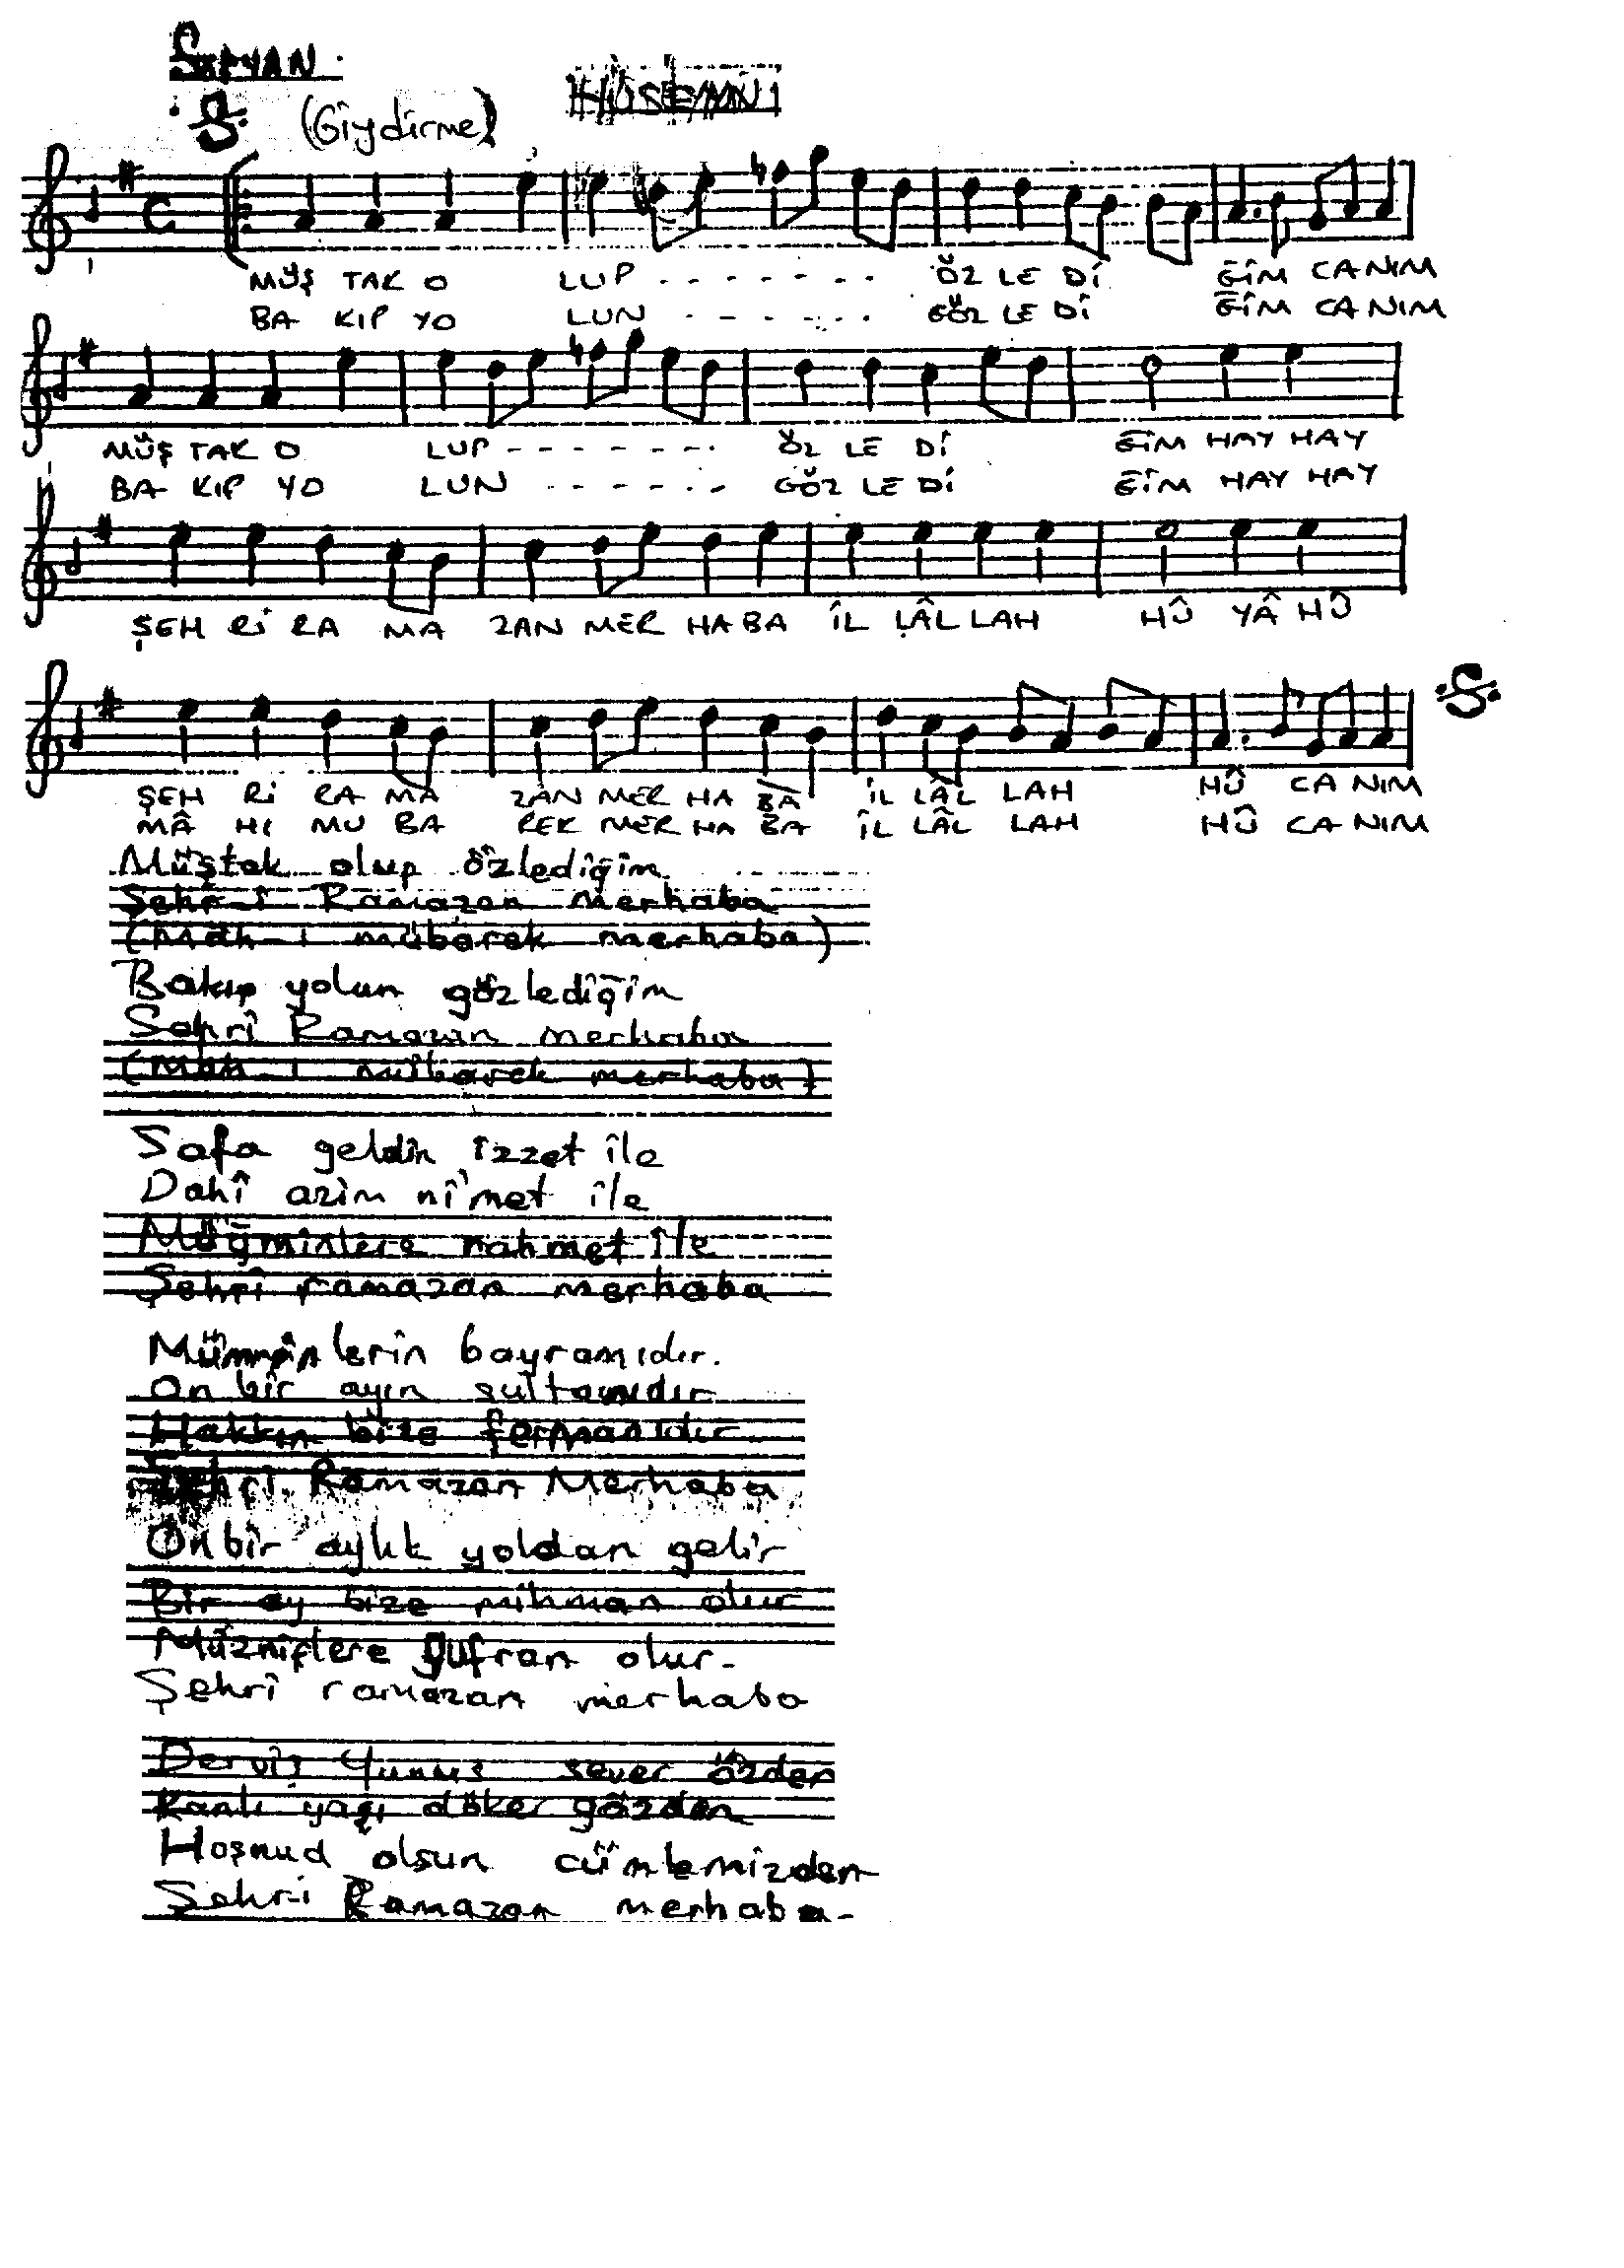 SOFYAN
(Giydirme)
HÜSEYNİ
MÜŞ TAK O LUP - - - - - - - ÖZ LE Dİ ĞİM CANIM
BA KIP YO LUN - - - - - - GÖZ LE Dİ ĞİM CANIM
MÜŞ TAK O LUP - - - - - - - ÖZ LE Dİ ĞİM HAY HAY
BA KIP YO LUN - - - - - - GÖZ LE Dİ ĞİM HAY HAY
ŞEH Rİ RA MA ZAN MER HA BA ÎL LÂL LAH HÛ YÂ HÛ
ŞEH Rİ RA MA ZAN MER HA BA İL LÂL LAH HÛ CA NIM
MÂ HI MU BA REK MER HA BA ÎL LÂL LAH HÛ CA NIM
Müştak olup özlediğim
Şehr-i Ramazan merhaba
(Mâh-ı mübarek merhaba)
Bakıp yolun gözlediğim
Şehri Ramazan merhaba
(Mâh-ı mübarek merhaba)
Safa geldin izzet ile
Dahî azim nî'met ile
Mü'minlere rahmet ile
Şehri ramazan merhaba
Müminlerin bayramıdır.
On bir ayın sultanıdır
Hakkın bize fermanıdır
Şehri Ramazan Merhaba
On bir aylık yoldan gelir
Bir ay bize mihman olur
Müzniplere gufran olur.
Şehrî ramazan merhaba
Derviş Yunus sever özden
Kanlı yaşı döker gözden
Hoşnud olsun cümlemizden
Şehr-i Ramazan merhaba-